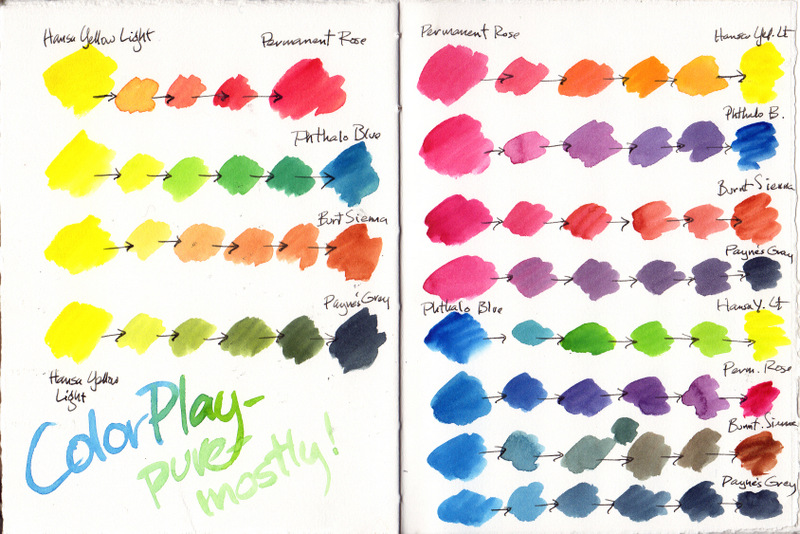 Hansa Yellow Light
Permanent Rose
Phthalo Blue
Burt Sienna
Payne's Grey
Hansa Yellow
Light
Color Play-
pure
mostly!
Permanent Rose
Hansa Yel. Lt
Phthalo B.
Burnt Sienna
Payne's Gray
Phthalo Blue
Hansa Y. Lt
Perm. Rose
Burnt. Sienna
Payne's Grey